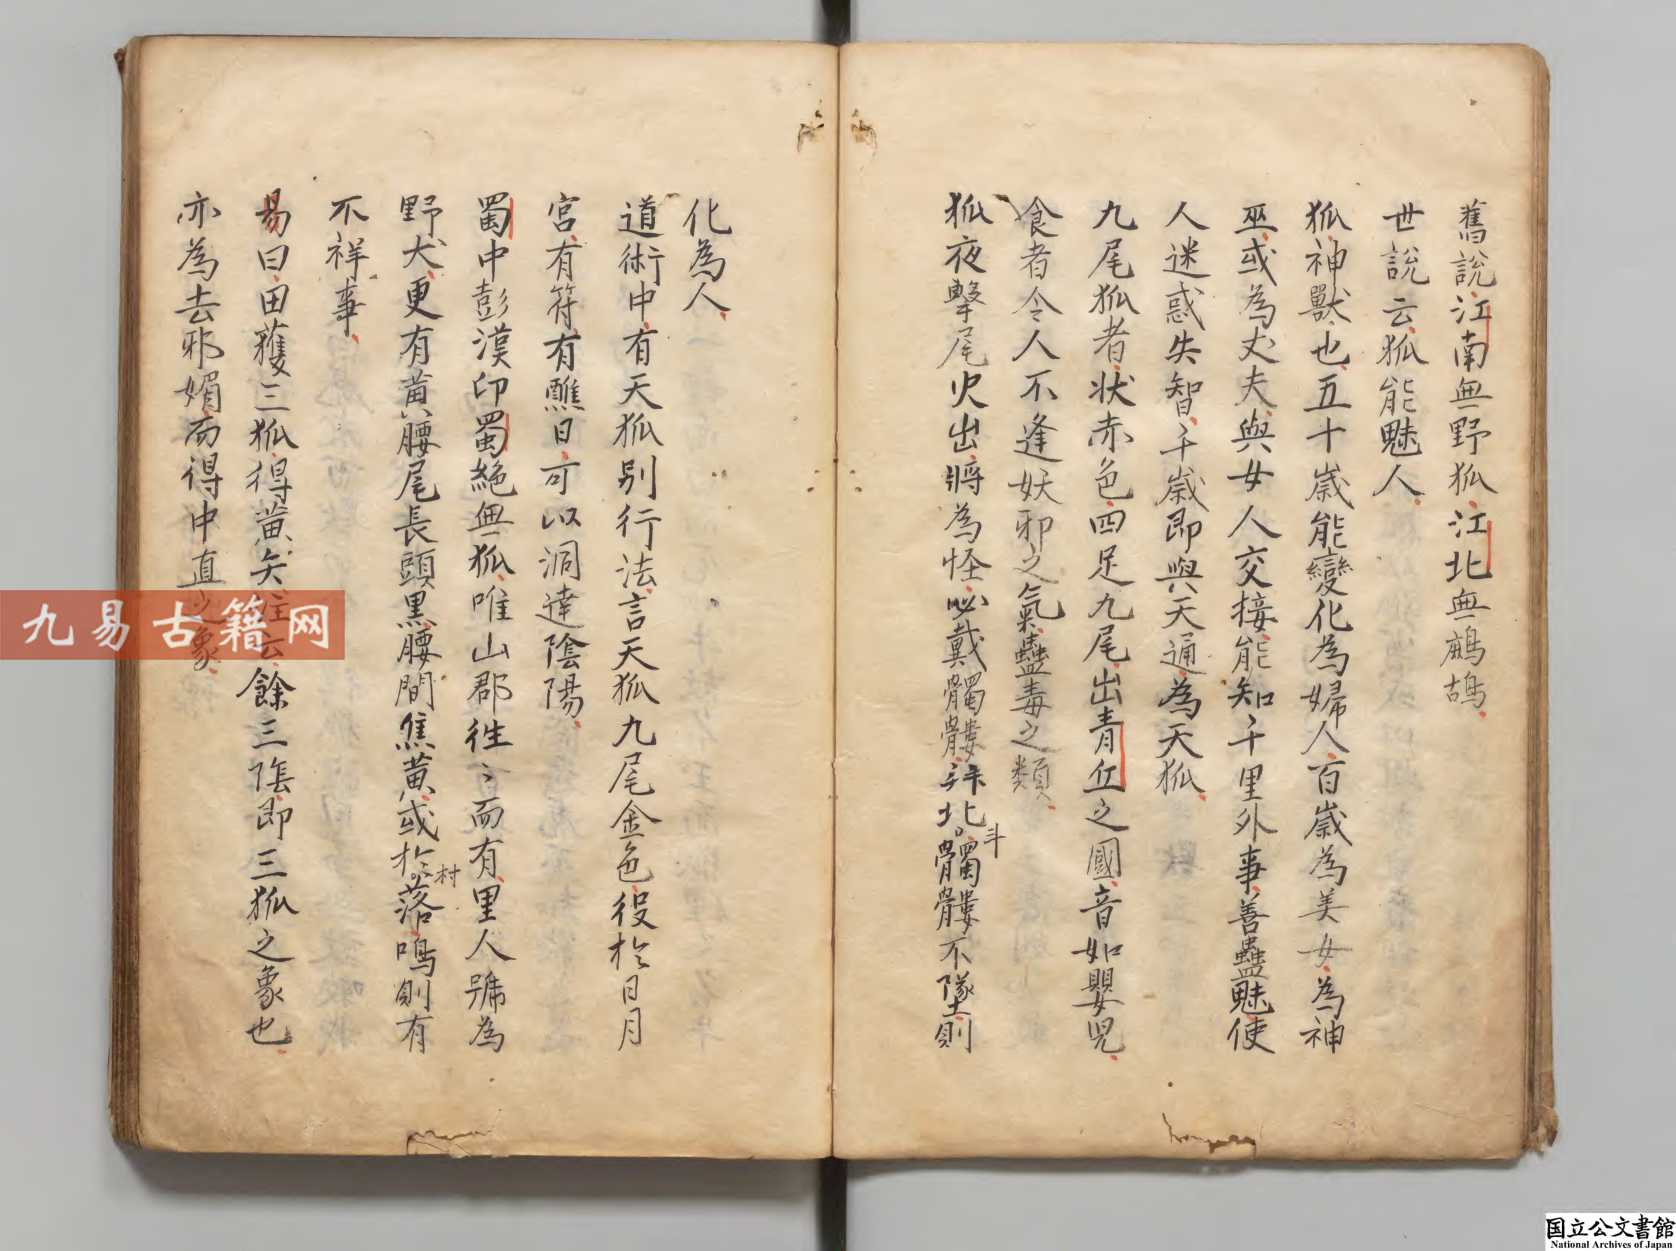 舊說江南無野狐江北無鷓鴣
世說云狐能魅人
狐神獸也五十歲能變化為婦人百歲為美女為神
巫或為丈夫與女人交接能知千里外事善蠱魅使
人迷惑失智千歲即與天通為天狐
九尾狐者狀赤色四足九尾出青丘之國音如嬰兒
食者令人不逢妖邪之氣蠱毒之類
狐夜擊尾火出將為怪必戴髑髏拜北髑髏不墜則
斗
化為人
道術中有天狐別行法言天狐九尾金色役於日月
宮有符有醮日可以洞達陰陽
蜀中彭漢印蜀絕無狐唯山郡往〻而有里人號為
野犬更有黃腰尾長頭黑腰間焦黃或於落鳴則有
村
不祥事
易曰田獲三狐得黃矢注云餘三陰即三狐之象也
亦為去邪媚而得中直之象
九易古籍网
国立公文書館
National Archives of Japan